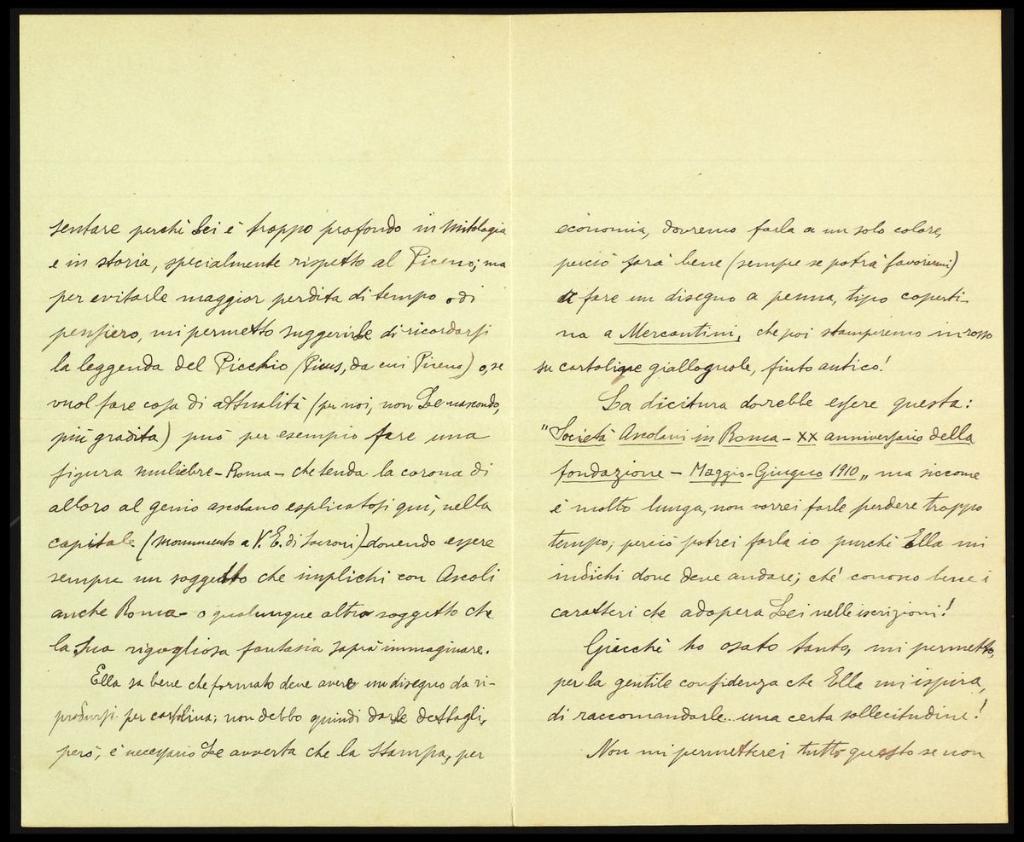 sentare perchè Lei è troppo profondo in mitologia
e in storia, specialmente rispetto al Piceno; ma
per evitarle maggior perdita di tempo o di
pensiero, mi permetto suggerirLe di ricordarsi
la leggenda del Picchio (Picus, da cui Picenus) o, se
vuol fare cosa di attualità (per noi, non Le nascondo,
più gradita) può per esempio fare una
figura muliebre - Roma - che tenda la corona di
alloro al genio ascolano esplicatosi qui, nella
capitale (monumento a V. E. di Sacconi) dovendo essere
sempre un soggetto che implichi con Ascoli
anche Roma - o qualunque altro soggetto che
la Sua rigogliosa fantasia saprà immaginare.
Ella sa bene che formato deve avere un disegno da ri-
prodursi per cartolina; non debbo quindi darLe dettagli,
però, è necessario Le avverta che la stampa, per
economia, dovremo farla a un solo colore,
perciò farà bene (sempre se potrà favorirmi)
a fare un disegno a penna, tipo coperti-
na a Mercantini, che poi stamperemo in rosso
su cartoline giallognole, finto antico!
La dicitura dovrebbe essere questa:
"Società Ascolani in Roma - XX anniversario della
fondazione - Maggio-Giugno 1910" ma siccome
è molto lunga, non vorrei farle perdere troppo
tempo, perciò potrei farla io purchè Ella mi
indichi dove deve andare; chè conosco bene i
caratteri che adopera Lei nelle iscrizioni!
Giacchè ho osato tanto, mi permetto,
per la gentile confidenza che Ella mi ispira,
di raccomandarle.. una certa sollecitudine!
Non mi permetterei tutto questo se non